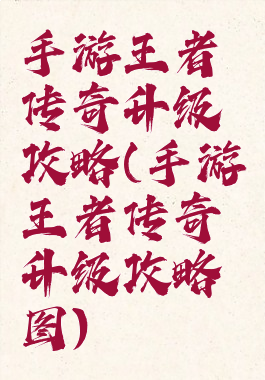 手游王者
传奇升级
攻略(手游
王者传奇
升级攻略
图)